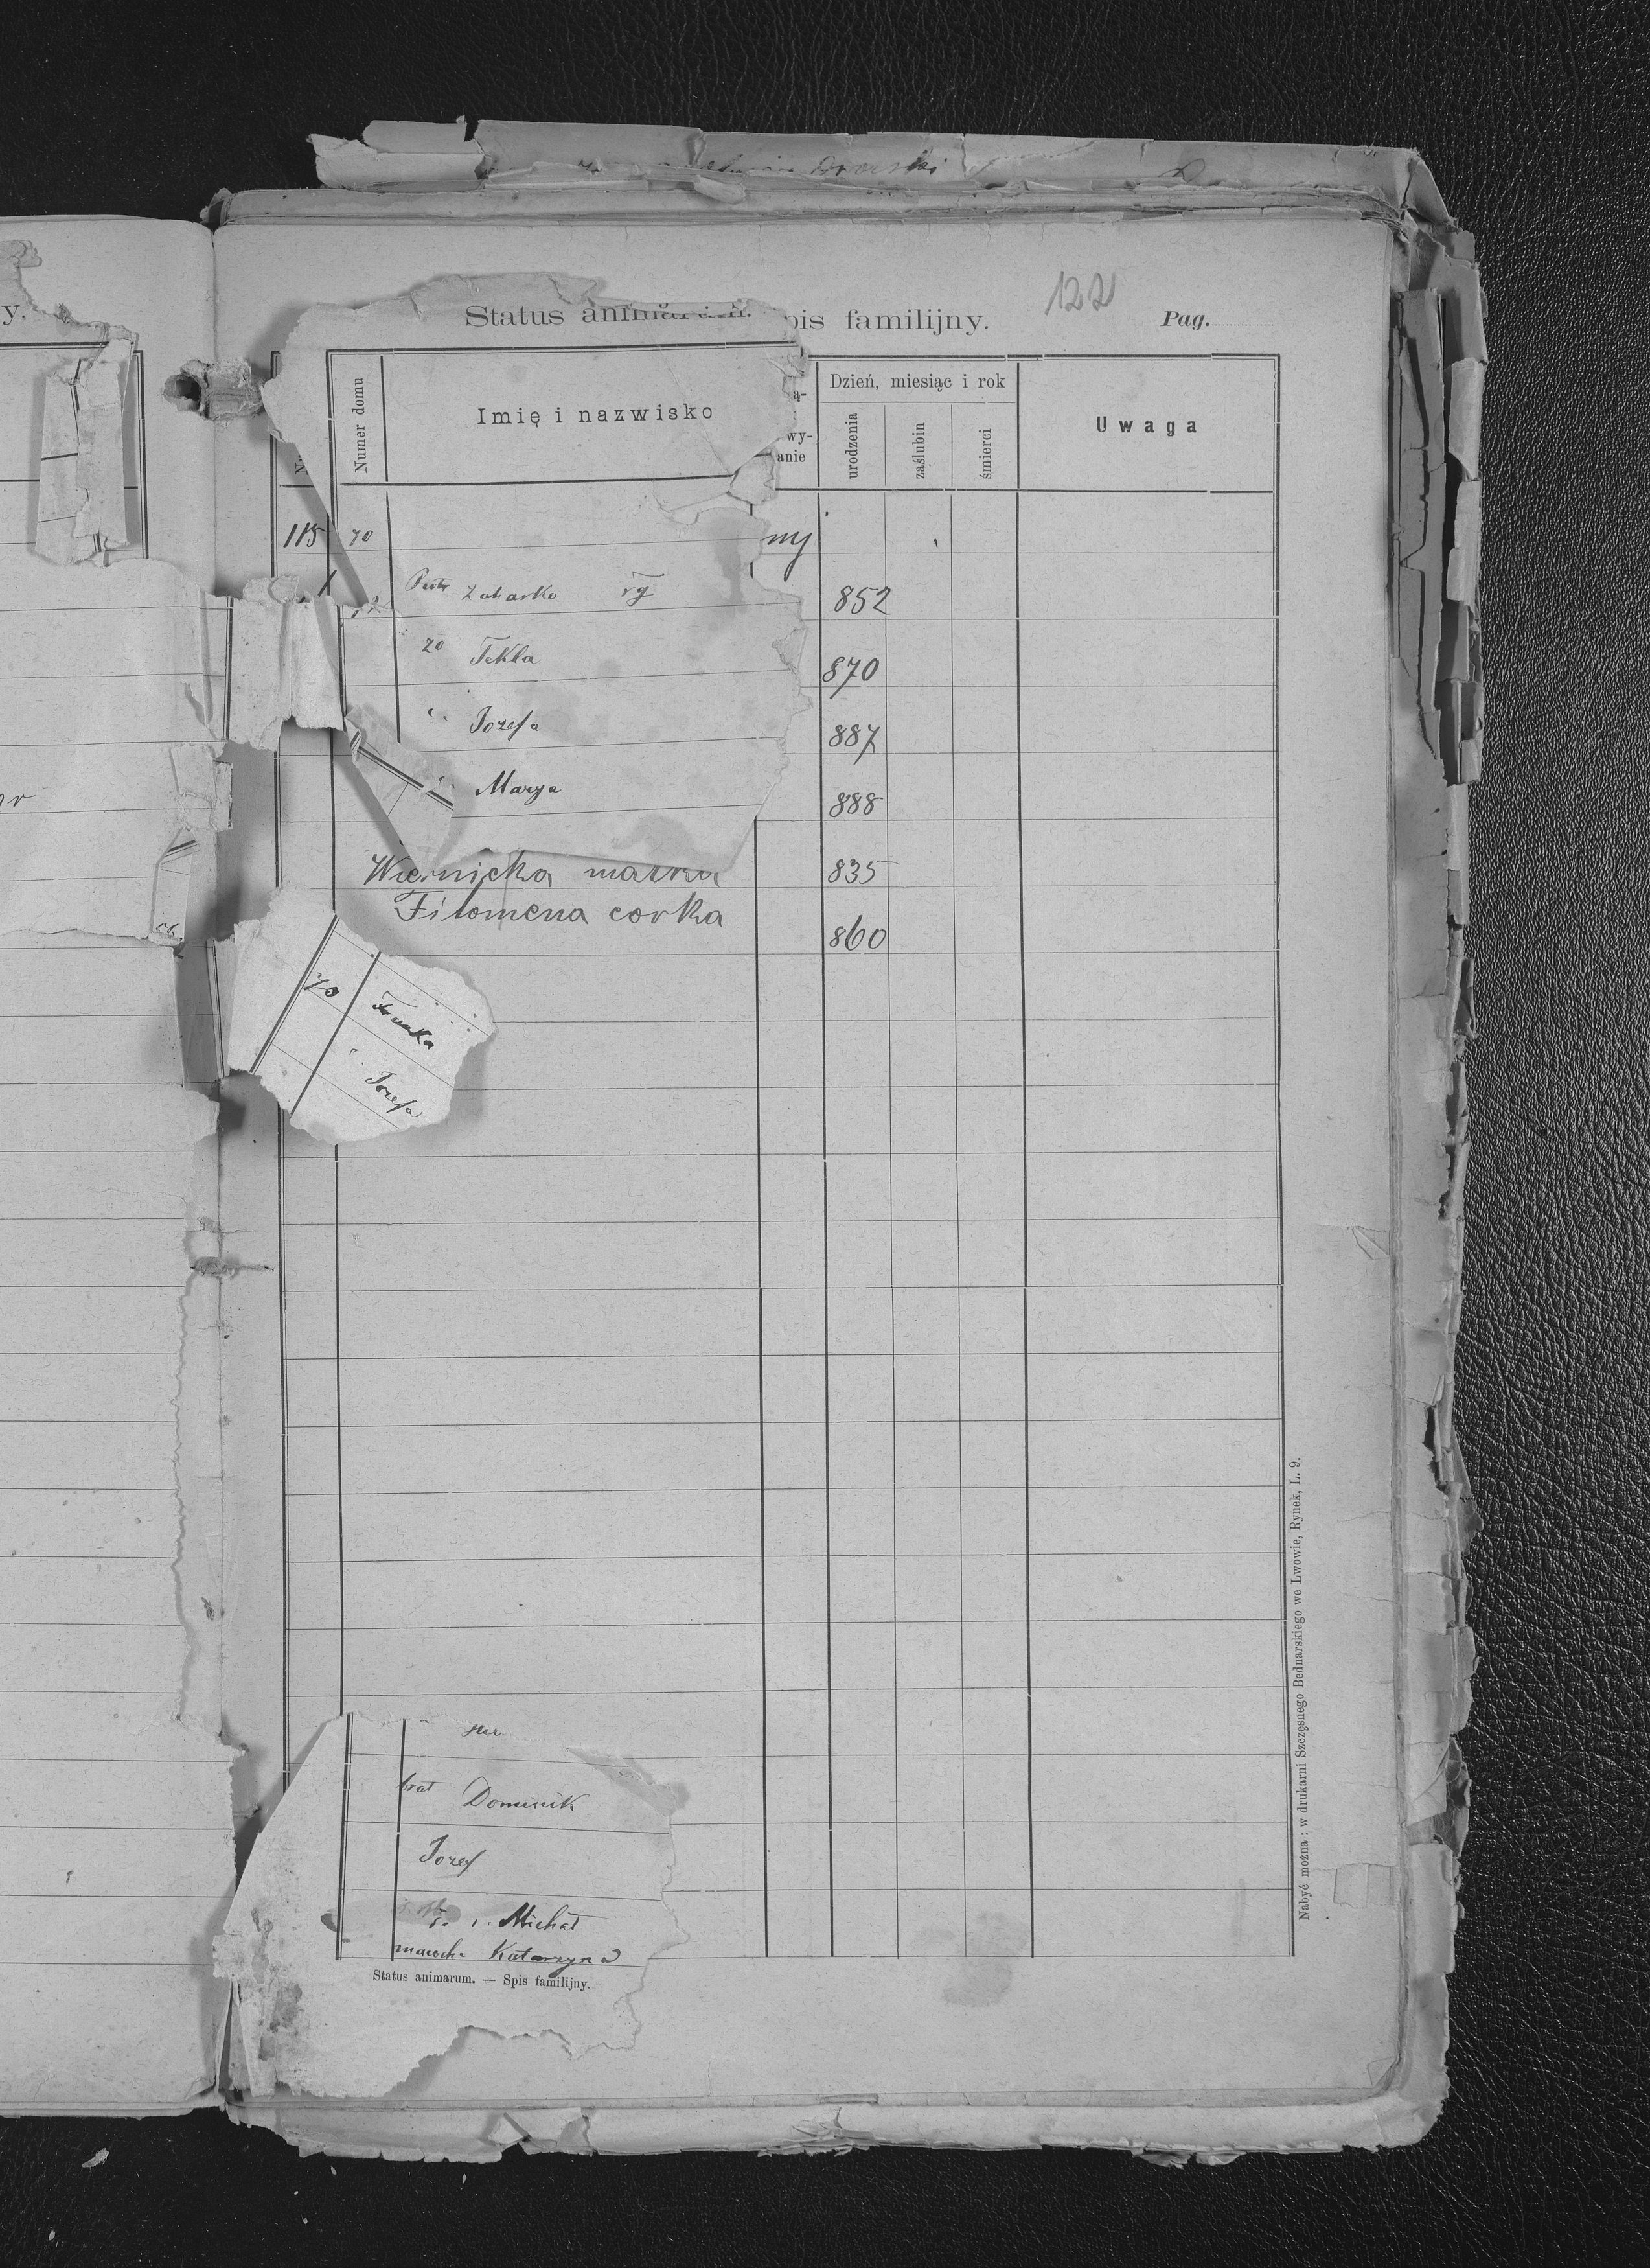 Dworski
122
Status animarum. pis familijny. Pag.
y.
Numer domu
Imię i nazwisko
ą-
wy-
anie
Dzień, miesiąc i rok
urodzenia
zaślubin
śmierci
Uwaga
115 70 ny
Piotr Zaharko rg 852
zo Tekla 870
Jozefa 887
Marya 888
Wiernicka matka 835
Filomena corka 860
70
Jozefa
brat Dominik
Jozef
Michał
macocha Katarzyna
Status animarum. — Spis familijny.
Nabyć można: w drukarni Szczęsnego Bednarskiego we Lwowie, Rynek, L. 9.